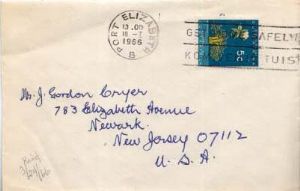 PORT ELIZABETH
13.00
18-7
1966
B
SAFELY
TUIS
5c
Mr. J. Gordon Cryer
783 Elizabeth Avenue
Newark
New Jersey 07112
U.S.A.